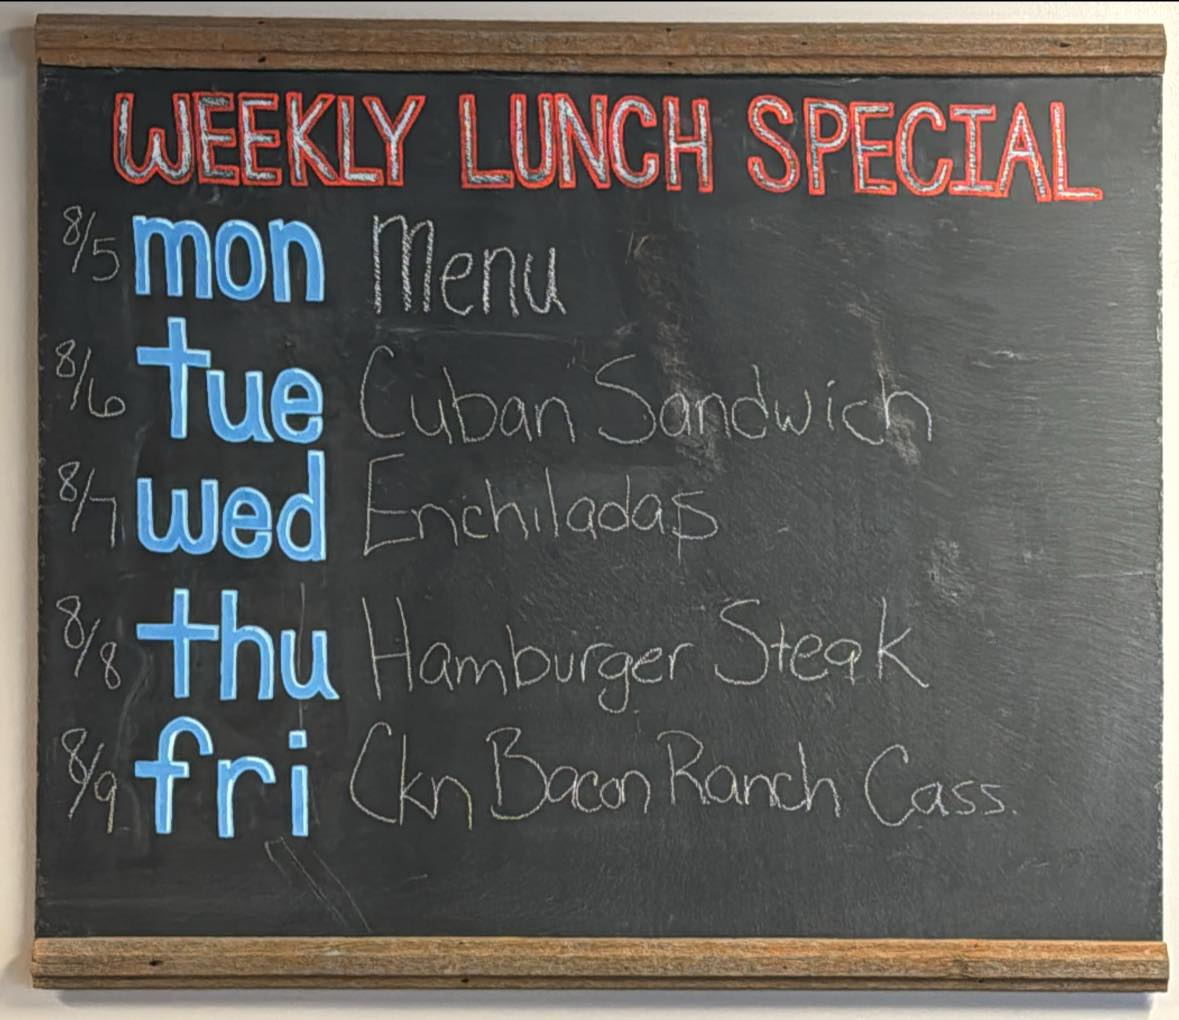 WEEKLY LUNCH SPECIAL
8/5 mon Menu
8/6 tue Cuban Sandwich
8/7 wed Enchiladas
8/8 thu Hamburger Steak
8/9 fri Ckn Bacon Ranch Cass.